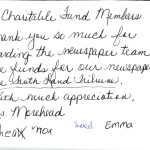 Charitable Fund Members
ank you so much for
arding the newspaper team
e funds for our newspaper
e South Land Tribune.
ith much appreciation,
s. Morehead
max Jared Emma